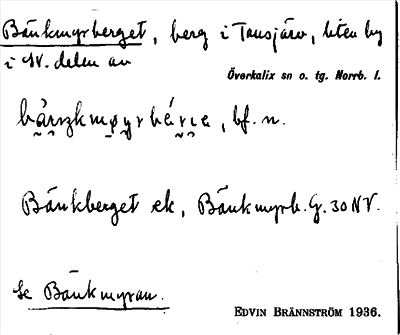 Bänkmyrberget, berg i Tansjärv, liten by
i NV. delen av
Överkalix sn o. tg. Norrb. l.
bf. n.
Bänkberget ek, Bänkmyrb. G. 30 NV.
Se Bänkmyran.
EDVIN BRÄNNSTRÖM 1936.